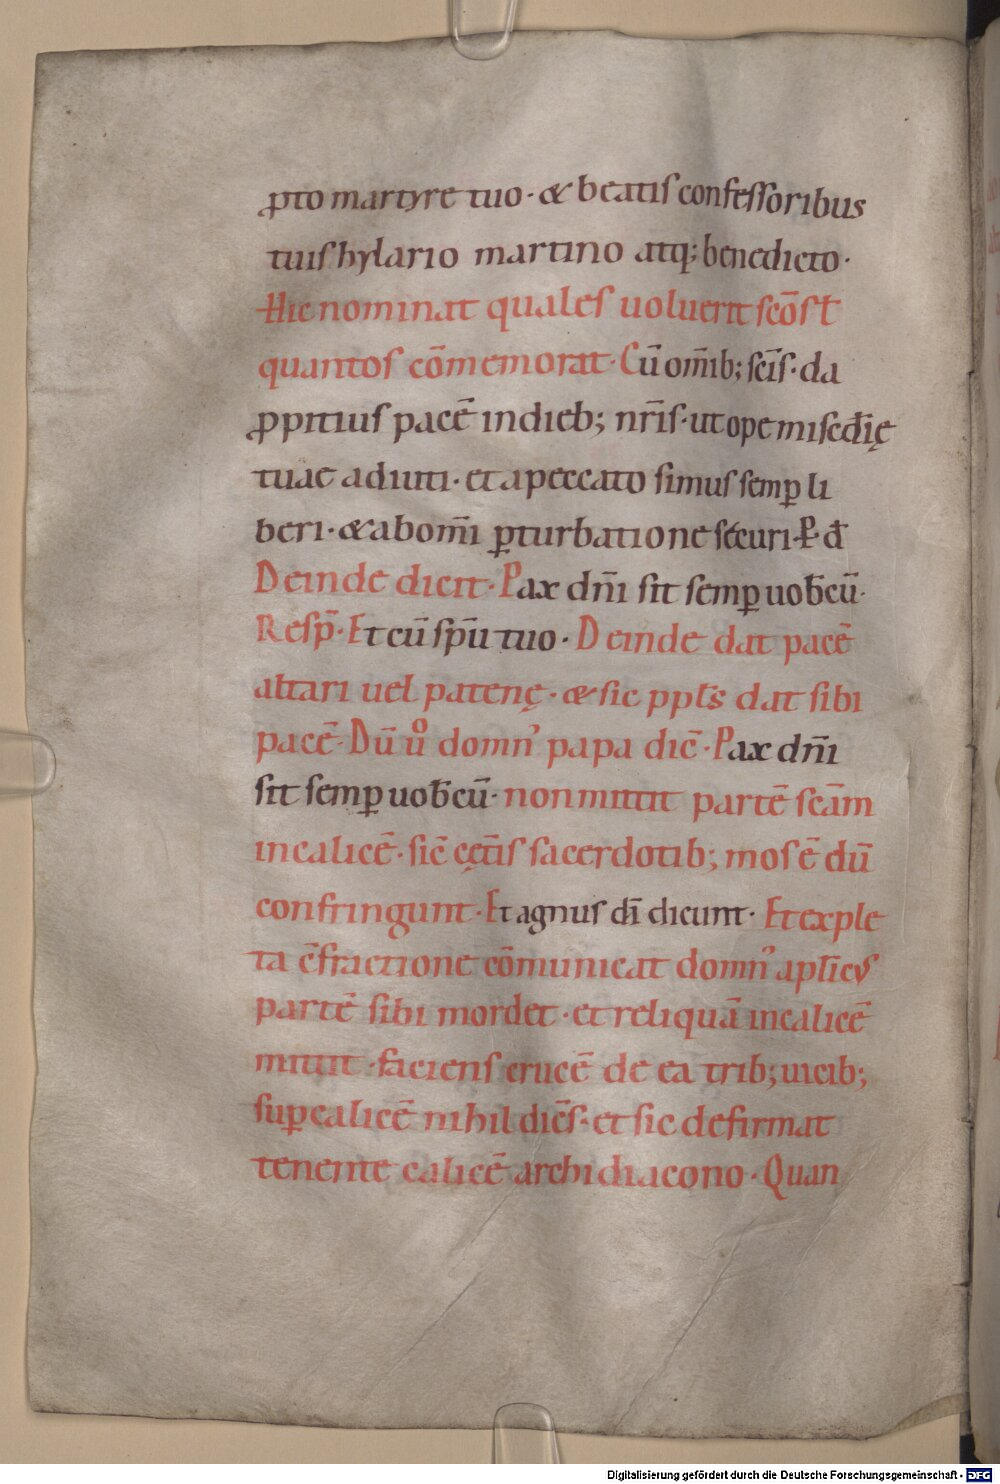 ꝓto martyre tuo· & beatis confessoribus
tuis hylario martino atq; benedicto·
Hic nominat quales uoluerit scōs ł
quantos cōmemorat· Cū om̄ib; sc̄is· da
ꝓpitius pacē in dieb; nr̄is· ut ope misc̄dię
tuae adiuti· et a peccato simus semꝑ li
beri· & ab om̄i ꝑturbatione securi· P· đ
Deinde dicit· Pax dn̄i sit semꝑ uob̄cū·
Resp̄· Et cū sp̄u tuo· Deinde dat pacē
altari uel patenę· & sic ppl̄s dat sibi
pacē· Dū uº domn᾽ papa dic̄· Pax dn̄i
sit semꝑ uob̄cū· non mittit partē scām
in calicē· sic̄ cęt̄is sacerdotib; mos ē dū
confringunt· Et agnus dī dicunt· Et exple
ta c̄fractione cōmunicat domn᾽ apl̄icus
partē sibi mordet· et reliquā in calicē
mittit· faciens crucē de ea trib; uicib;
suꝑ calicē nihil dic̄s· et sic defirmat
tenente calicē archidiacono· Quan
Digitalisierung gefördert durch die Deutsche Forschungsgemeinschaft - DFG